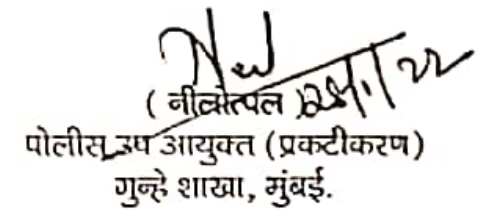 ( नीलोत्पल )
पोलीस उप आयुक्त (प्रकटीकरण)
गुन्हे शाखा, मुंबई.